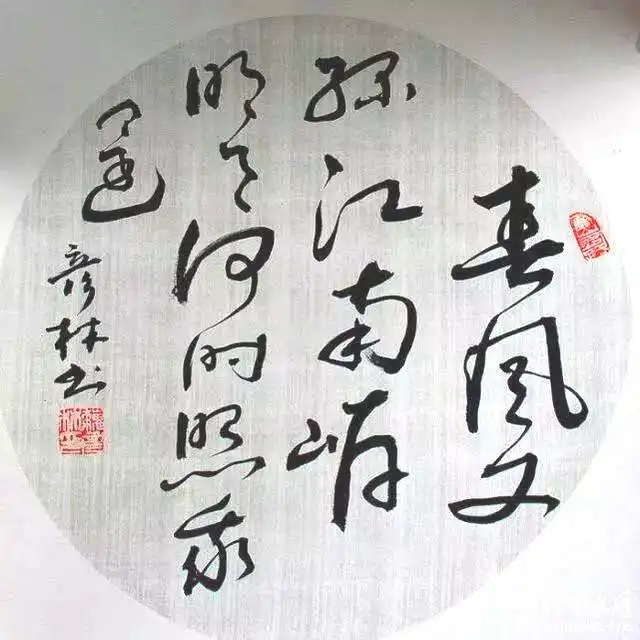 春风又
绿江南岸
明月何时照我
還
彦林书